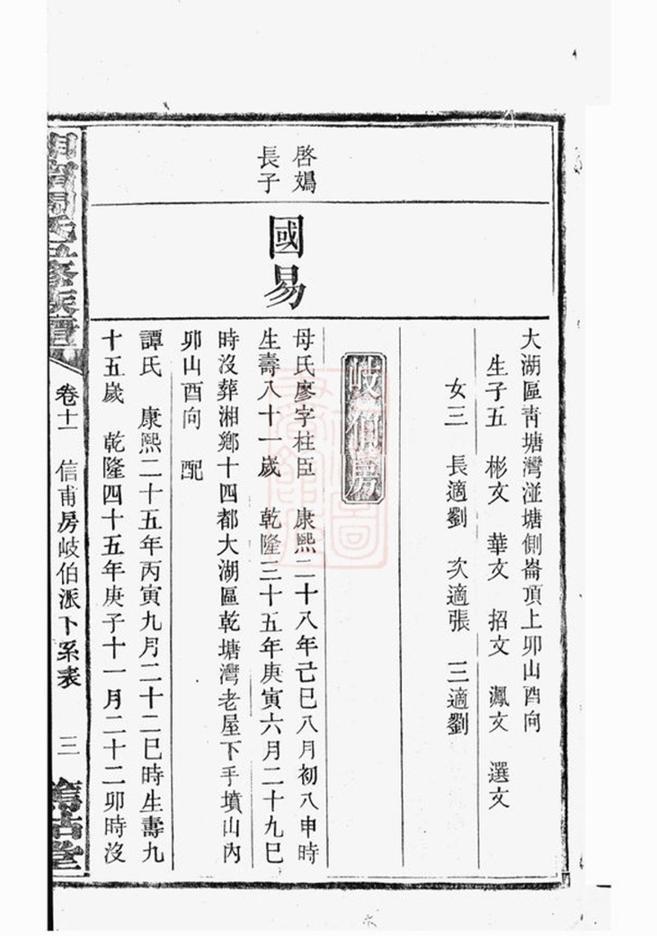 大湖區靑塘灣湴塘側崙頂上卯山酉向
生子五 彬文 華文 招文 渢文 選文
女三 長適劉 次適張 三適劉
岐伯房
啓鳩
長子
國易
母氏廖字柱臣 康熙二十八年己巳八月初八申時
生壽八十一歲 乾隆三十五年庚寅六月二十九巳
時沒葬湘鄉十四都大湖區乾塘灣老屋下手墳山內
卯山酉向 配
譚氏 康熙二十五年丙寅九月二十二巳時生壽九
十五歲 乾隆四十五年庚子十一月二十二卯時沒
卷十一 信甫房岐伯派下系表 三